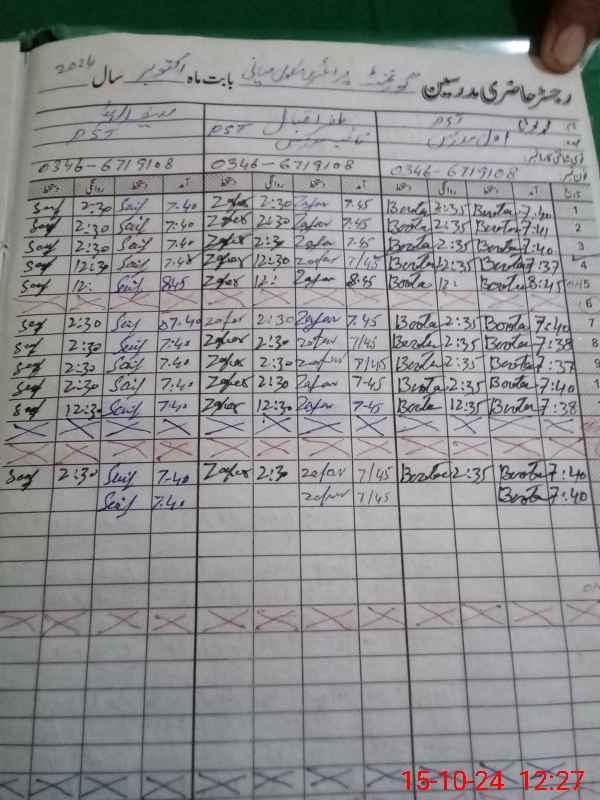 رجسٹر حاضری مدرسین گورنمنٹ پرائمری سکول میانی بابت ماہ اکتوبر سال 2024
PST ظفر اقبال
اول مدرس PST PST
0346-6719108 0346-6719108 0346-6719108
تاریخ آمد دستخط روانگی دستخط آمد دستخط روانگی دستخط آمد دستخط روانگی دستخط
Saif 2:30 Saif 7:40 Zafar 2:30 Zafar 7:45 Boota 2:35 Boota 7:40 1
Saif 2:30 Saif 7:40 Zafar 2:30 Zafar 7:45 Boota 2:35 Boota 7:41 2
Saif 2:30 Saif 7:40 Zafar 2:30 Zafar 7-45 Boota 2:35 Boota 7:40 3
Saif 12:30 Saif 7:45 Zafar 12:30 zafar 7/45 Boota 12:35 Boota 7:37 4
Saif 12: Saif 8:45 Zafar 12: Zafar 8:45 Boota 12: Boota 8:45 5
6
Saif 2:30 Saif 7:40 zafar 2:30 Zafar 7:45 Boota 2:35 Boota 7:40 7
Saif 2:30 Saif 7:40 Zafar 2:30 zafar 7/45 Boota 2:35 Boota 7:38 8
Saif 2:30 Saif 7:40 Zafar 2:30 zafar 7/45 Boota 2:35 Boota 7:37 9
Saif 2:30 Saif 7:40 Zafar 2:30 Zafar 7-45 Boota 2:35 Boota 7:40 1
Saif 12:30 Saif 7:40 Zafar 12:30 Zafar 7-45 Boota 12:35 Boota 7:38
Saif 2:30 Saif 7-40 Zafar 2:30 zafar 7/45 Boota 2:35 Boota 7:40
Saif 7:40 zafar 7/45 Boota 7:40
15-10-24 12:27